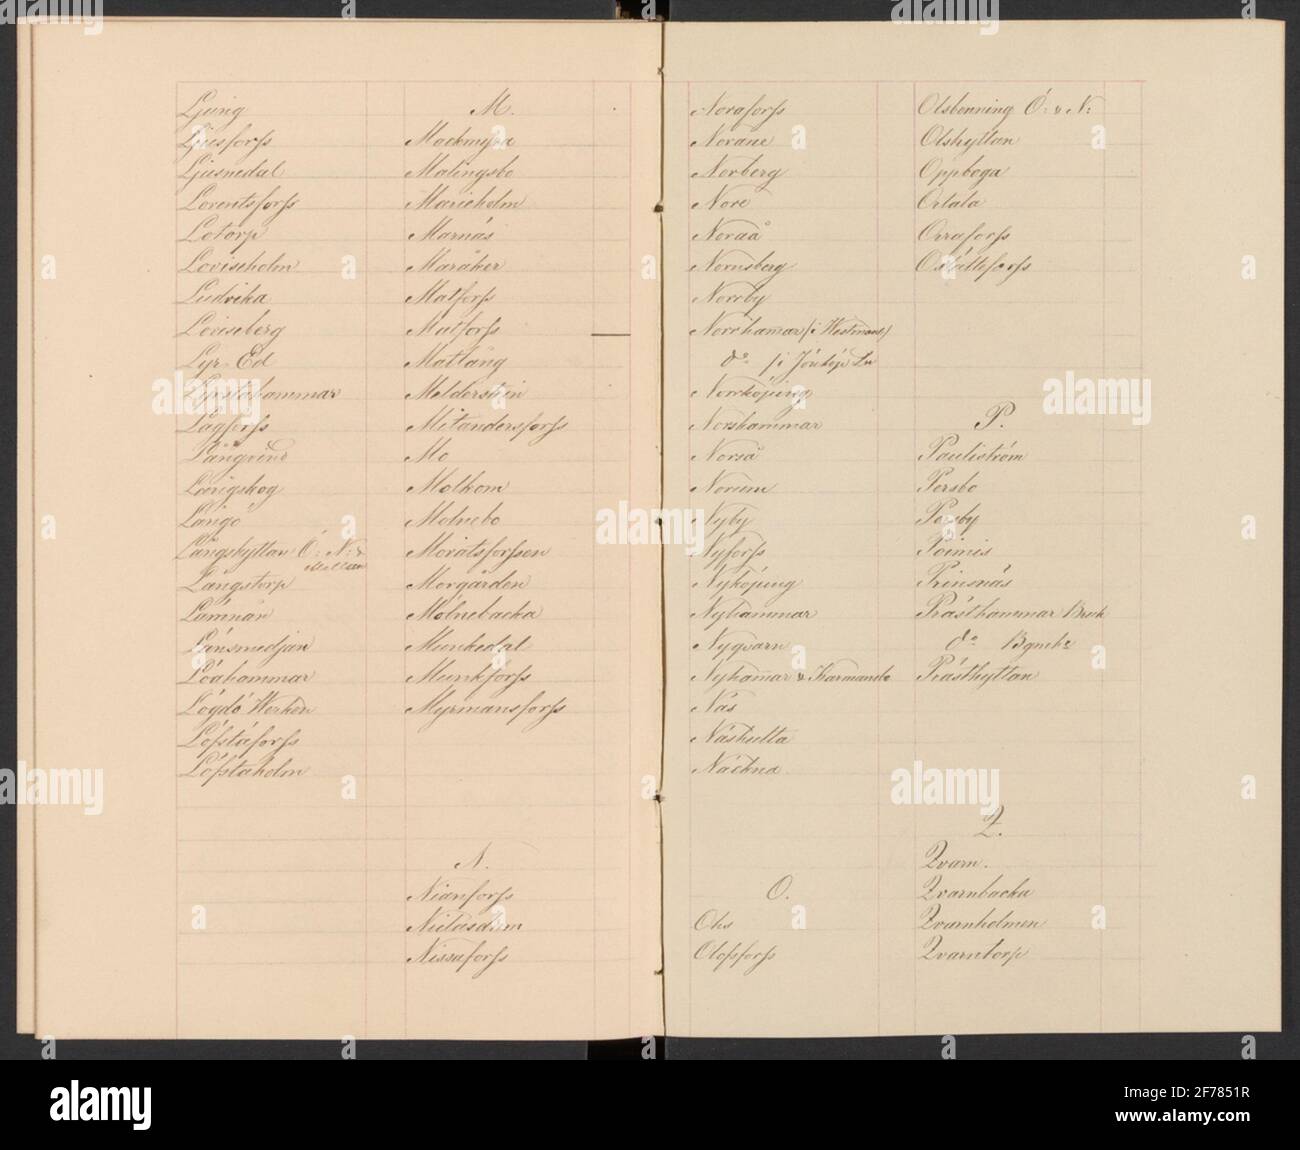 Ljung
Ljusforss
Ljusnedal
Lorentsforss
Lotorp
Loviseholm
Ludvika
Loviseberg
Lyr-Ed
Lyrstahammar
Lågforss
Långvind
Långskog
Långö
Långshyttan Ö: N: &
Mellan
Långstorp
Lämnån
Länsmedjan
Löahammar
Lögdö Werken
Löfstaforss
Löfstaholm
M.
Mackmyra
Malingsbo
Marieholm
Marnäs
Maråker
Matforss
Matforss
Matlång
Melderstein
Mitandersforss
Mo
Molkom
Molnebo
Moratsforssen
Morgården
Mölnebacka
Munkedal
Munkforss
Myrmansforss
N.
Nianforss
Nissaforss
Noraforss
Norane
Norberg
Nore
Noraå
Nornsberg
Norrby
Norrhamar (i Westmanl)
do (i Jönköp Ln
Norrköping
Norshammar
Norså
Norum
Nyby
Nyforss
Nyköping
Nyhammar
Nyqvarn
Nyhamar & Karmansbo
Näs
Näshulta
Näckna
O.
Ohs
Olofsforss
Olsbenning Ö: & N:
Olshyttan
Oppboga
Ortala
Orraforss
Oslättforss
P.
Pauliström
Persbo
Persby
Primis
Prinsnäs
Prästhammar Bruk
do Bgmehr
Prästhyttan
Q.
Qvarn.
Qvarnbacka
Qvarnholmen
Qvarntorp
alamy
a
alamy
Image ID: 2F7851R
www.alamy.com